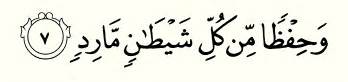 وَحِفۡظٗا مِّن كُلِّ شَيۡطَٰنٖ مَّارِدٖ ٧